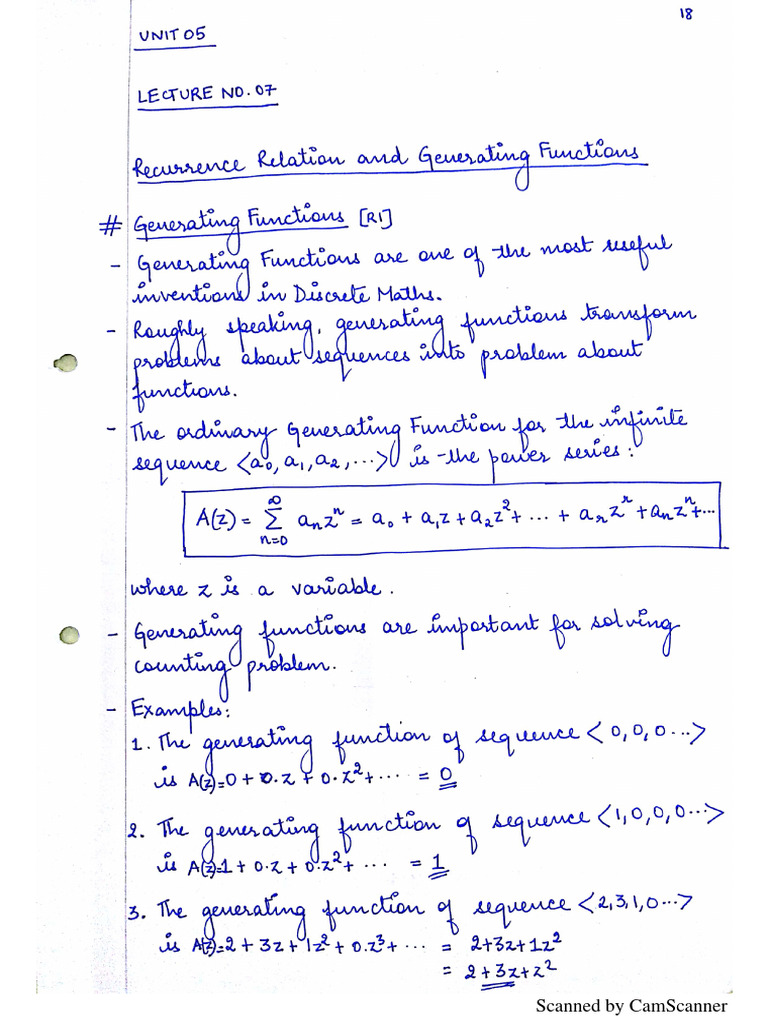 18
UNIT 05
LECTURE NO. 07
Recurrence Relation and Generating Functions
# Generating Functions [R1]
- Generating Functions are one of the most useful
inventions in Discrete Maths.
- Roughly speaking, generating functions transform
problems about sequences into problem about
functions.
- The ordinary Generating Function for the infinite
sequence <a₀, a₁, a₂, ...> is the power series :
A(z) = ∞ Σ n=0 aₙzⁿ = a₀ + a₁z + a₂z² + ... + aᵣzʳ + aₙzⁿ + ...
where z is a variable.
- Generating functions are important for solving
counting problem.
- Examples:
1. The generating function of sequence < 0, 0, 0 ...>
is A(z)=0 + 0.z + 0.z² + ... = 0
2. The generating function of sequence <1, 0, 0, 0 ...>
is A(z)=1 + 0.z + 0.z² + ... = 1
3. The generating function of sequence <2, 3, 1, 0 ...>
is A(z)=2 + 3z + 1z² + 0.z³ + ... = 2+3z+1z²
= 2+3z+z²
Scanned by CamScanner